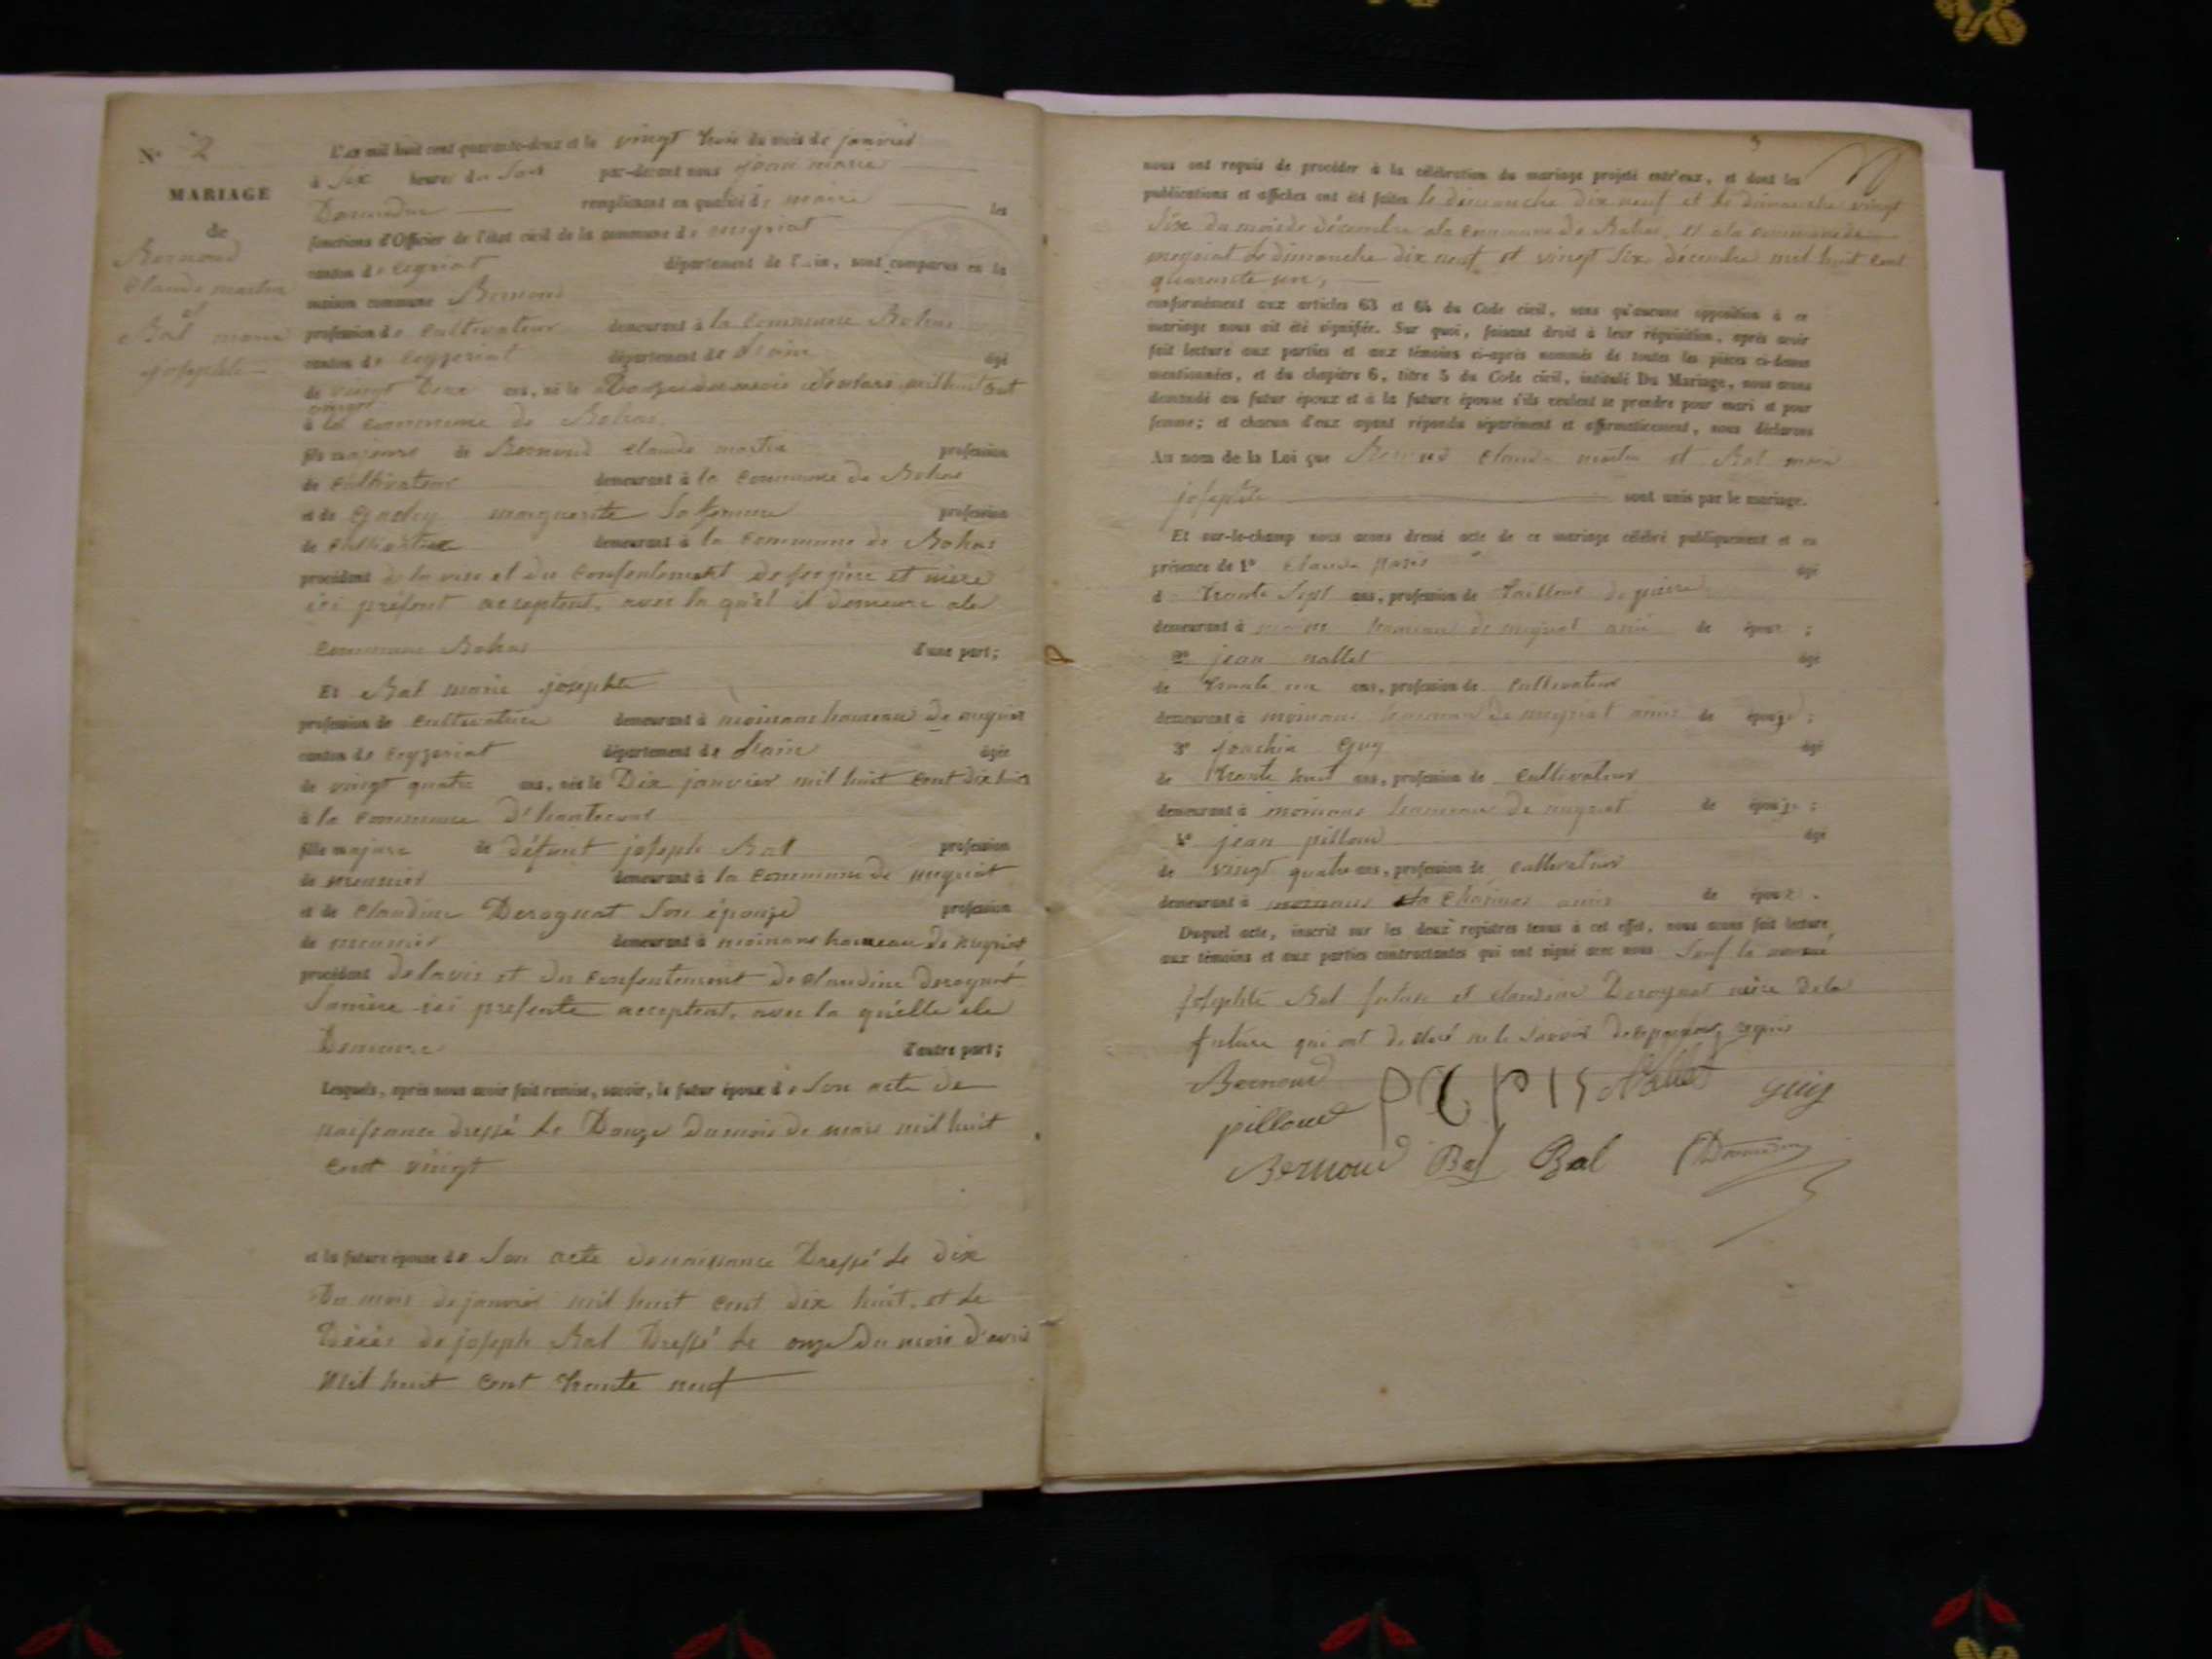 N° 2
MARIAGE
de
Bernoud
Claude martin
et
Bal marie
josephte
L'an mil huit cent quarante-deux et le vingt trois du mois de janvier
à six heures du soir par-devant nous jean marie
remplissant en qualité de maire les
fonctions d'Officier de l'état civil de la commune de meyriat
canton de Ceyzeriat département de l'Ain, sont comparus en la
maison commune Bernoud
profession de Cultivateur demeurant à la commune Bohas
canton de Ceyzeriat département de l'ain âgé
de vingt deux ans, né le Douze du mois de mars mil huit cent
vingt
à la commune de Bohas
fils majeur de Bernoud Claude martin profession
de Cultivateur demeurant à la commune de Bohas
et de marguerite sa femme profession
de Cultivatrice demeurant à la commune de Bohas
procédant de la vise et du Consentement de ses père et mère
ici présent acceptent, avec la qu'el il demeure ala
commune Bohas d'une part;
Et Bal marie josephte
profession de Cultivatrice demeurant à moinans hameau de meyriat
canton de Ceyzeriat département de l'ain âgée
de vingt quatre ans, née le Dix janvier mil huit cent dix huit
à la commune d'hautecour
fille majeure de défunt joseph Bal profession
de meunier demeurant à la commune de meyriat
et de Claudine Deroguat son épouze profession
de meunier demeurant à moinans hameau de meyriat
procédant de lavis et du consentement de Claudine deroguat
samère ici presente acceptent, avec la qu'elle ele
Demeure d'autre part;
Lesquels, après nous avoir fait remise, savoir, le futur époux de son acte de
naissance dressé le Douze du mois de mars mil huit
cent vingt
et la future épouse de son acte denaissance Dressé le dix
Du mois de janvier mil huit cent dix huit, et le
Décès de joseph Bal Dressé le onze Du mois d'avril
mil huit cent trente neuf
3
nous ont requis de procéder à la célébration du mariage projeté entr'eux, et dont les
publications et affiches ont été faites le dimanche dix neuf et le dimanche vingt
six du mois de décembre ala commune de Bohas, et ala commune de
meyriat le dimanche dix neuf et vingt six décembre mil huit cent
quarante un,
conformément aux articles 63 et 64 du Code civil, sans qu'aucune opposition à ce
mariage nous ait été signifiée. Sur quoi, faisant droit à leur réquisition, après avoir
fait lecture aux parties et aux témoins ci-après nommés de toutes les pièces ci-dessus
mentionnées, et du chapitre 6, titre 5 du Code civil, intitulé Du Mariage, nous avons
demandé au futur époux et à la future épouse s'ils veulent se prendre pour mari et pour
femme; et chacun d'eux ayant répondu séparément et affirmativement, nous déclarons
Au nom de la Loi que Bernoud Claude martin et Bal marie
josephte sont unis par le mariage.
Et sur-le-champ nous avons dressé acte de ce mariage célébré publiquement et en
présence de 1° Claude âgé
de trente sept ans, profession de tailleur de pierre
demeurant à hameau de meyriat ami de époux ;
2° jean nallet âgé
de trente un ans, profession de Cultivateur
demeurant à moinans hameau de meyriat amis de épouze ;
3° joachin Guy âgé
de trente huit ans, profession de Cultivateur
demeurant à moinans hameau de meyriat de épouze ;
4° jean pilloud âgé
de vingt quatre ans, profession de Cultivateur
demeurant à amis de époux .
Duquel acte, inscrit sur les deux registres tenus à cet effet, nous avons fait lecture
aux témoins et aux parties contractantes qui ont signé avec nous sauf la
josephte Bal future et claudine Deroguat mère dela
future qui ont declaré ne le savoir requis
Bernoud Nallet guy
pilloud
Bernoud Bal Bal